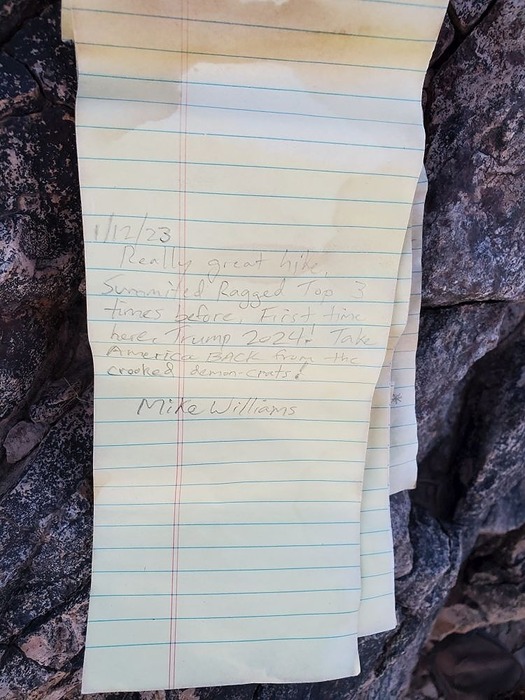 1/12/23
Really great hike,
Summited Ragged Top 3
times before, First time
here, Trump 2024! Take
America BACK from the
crooked demon-crats!
Mike Williams